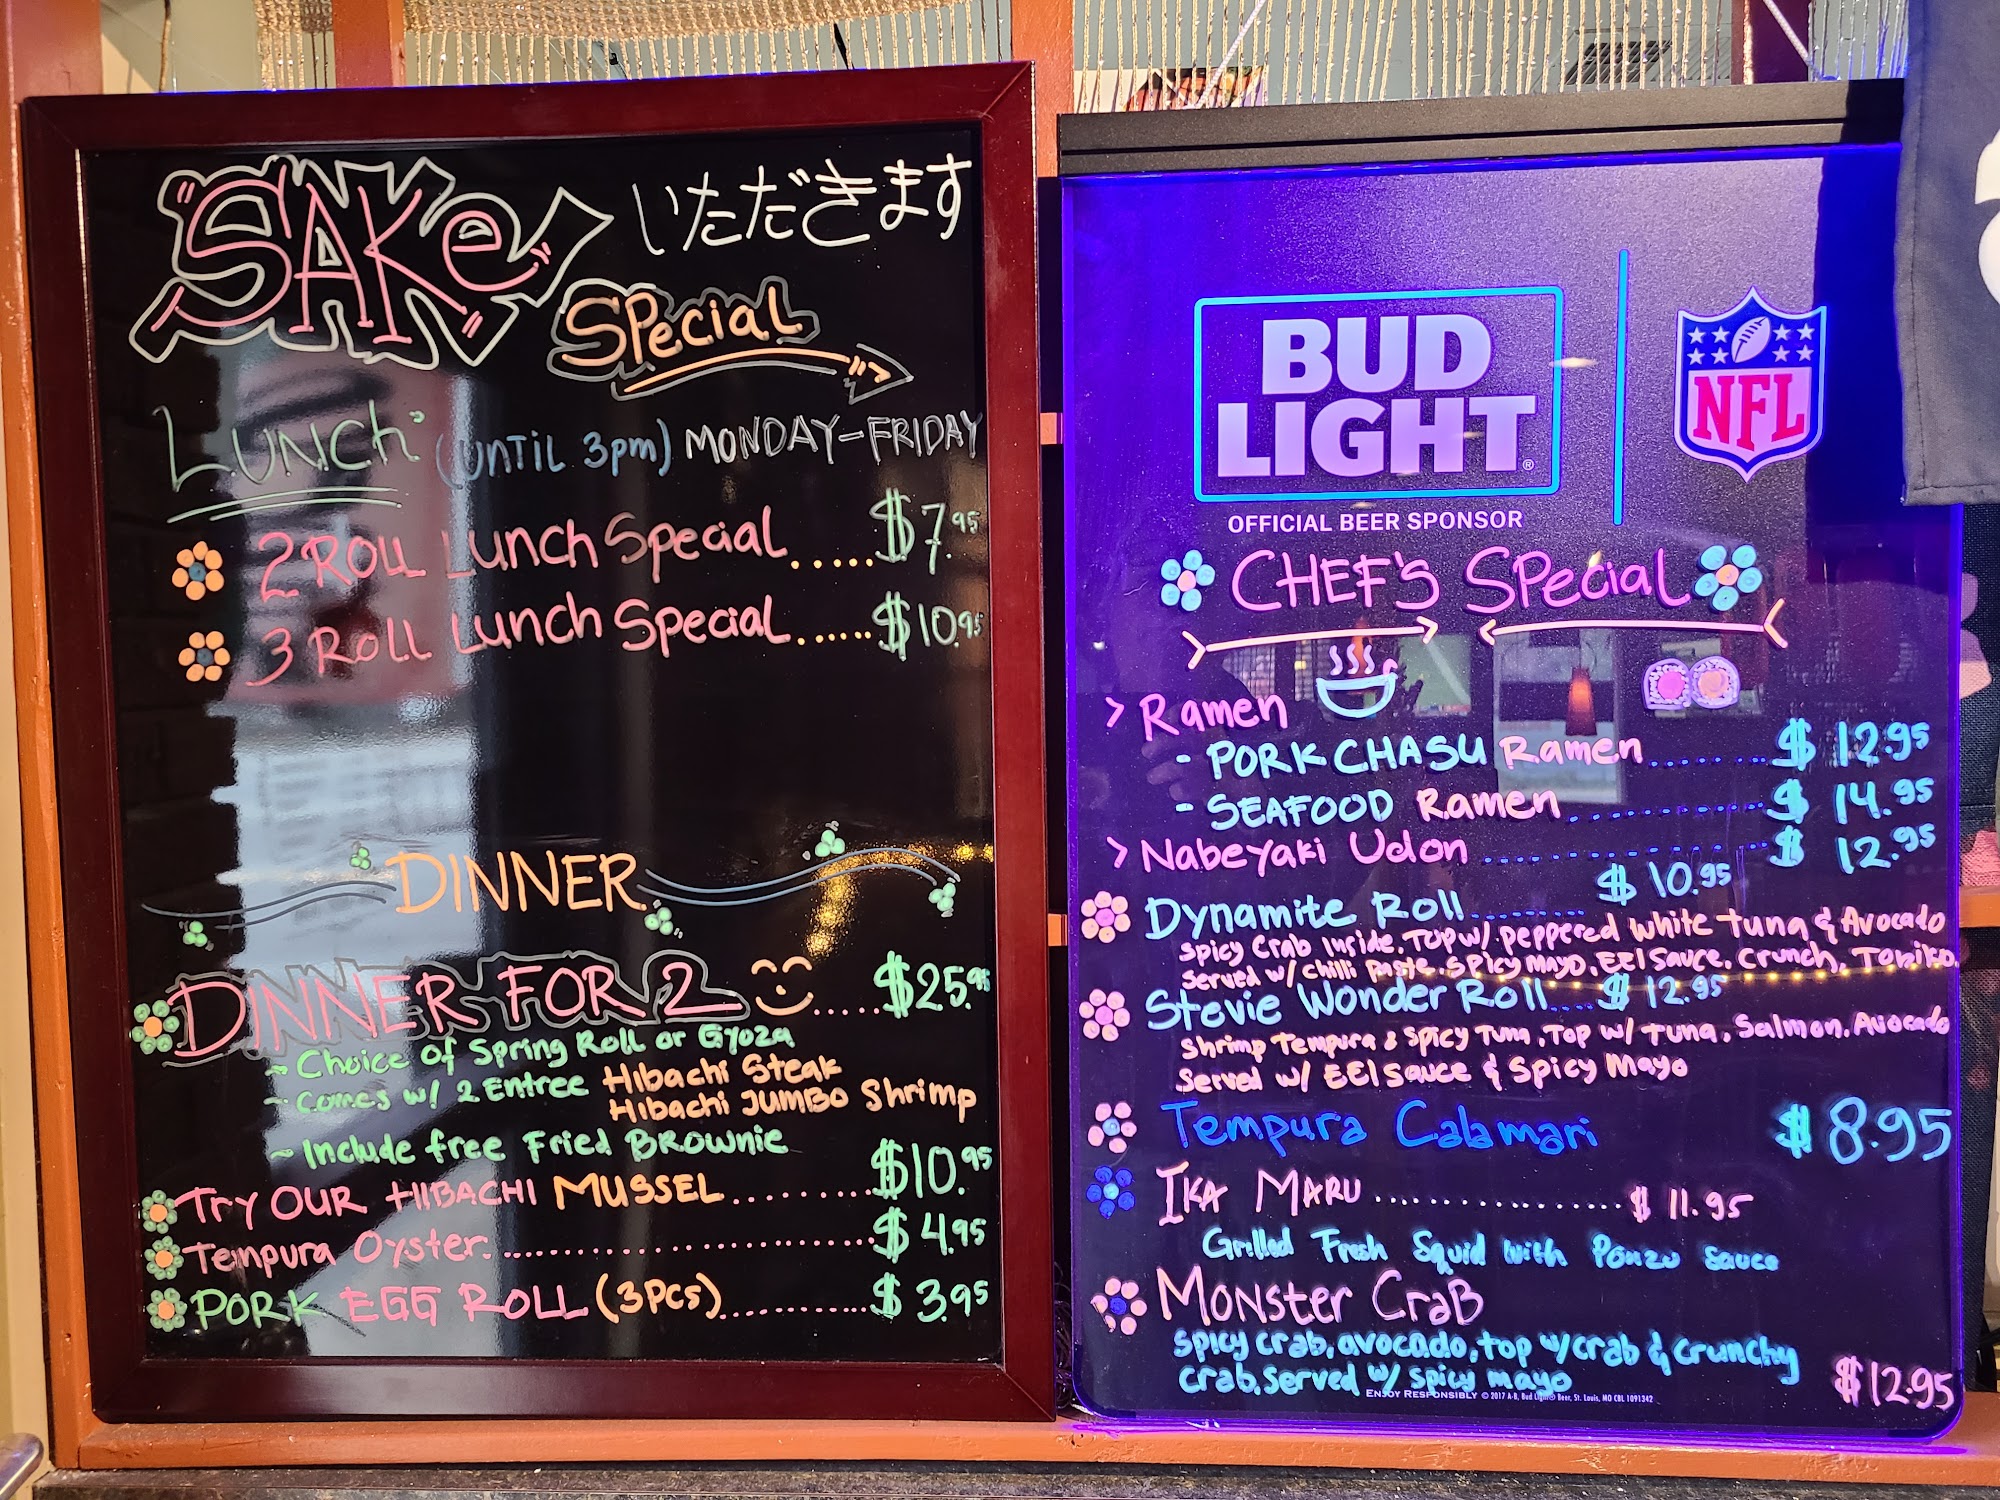 SAKe いただきます
SPecial
LUNCh (UNTiL 3pm) MONDAY-FRIDAY
2 ROLL LunchSpecial ..... $7.95
3 ROLL LunchSpecial...... $10.95
DINNER
DINNER FOR 2 ..... $25.95
~ Choice of Spring Roll or Gyoza
~ Comes w/ 2 Entree Hibachi Steak
Hibachi JUMBO Shrimp
~ Include free Fried BROWNIE
Try OUR HIBACHI MUSSEL......... $10.95
Tempura Oyster........................... $4.95
PORK EGG ROLL (3Pcs)............ $3.95
BUD
LIGHT®
NFL
OFFICIAL BEER SPONSOR
CHEF'S SPecial
> Ramen
- PORK CHASU Ramen........ $12.95
- SEAFOOD Ramen............ $14.95
> Nabeyaki Udon ................ $12.95
Dynamite Roll......... $10.95
Spicy Crab Inside, TOP w/ peppered White Tuna & Avocado
Served w/ chilli Paste, Spicy MAYO, EEl Sauce, Crunch, Tobiko
Stevie Wonder Roll.... $12.95
Shrimp Tempura & Spicy Tuna, Top w/ Tuna, Salmon, Avocado
Served w/ EEl Sauce & Spicy Mayo
Tempura Calamari $8.95
IKA MARU .................... $11.95
Grilled Fresh Squid with Ponzu sauce
MONSter CraB
spicy crab, avocado, top w/ crab & crunchy
crab, served w/ spicy mayo $12.95
ENJOY RESPONSIBLY © 2017 A-B, Bud Light® Beer, St. Louis, MO CBL 1091342